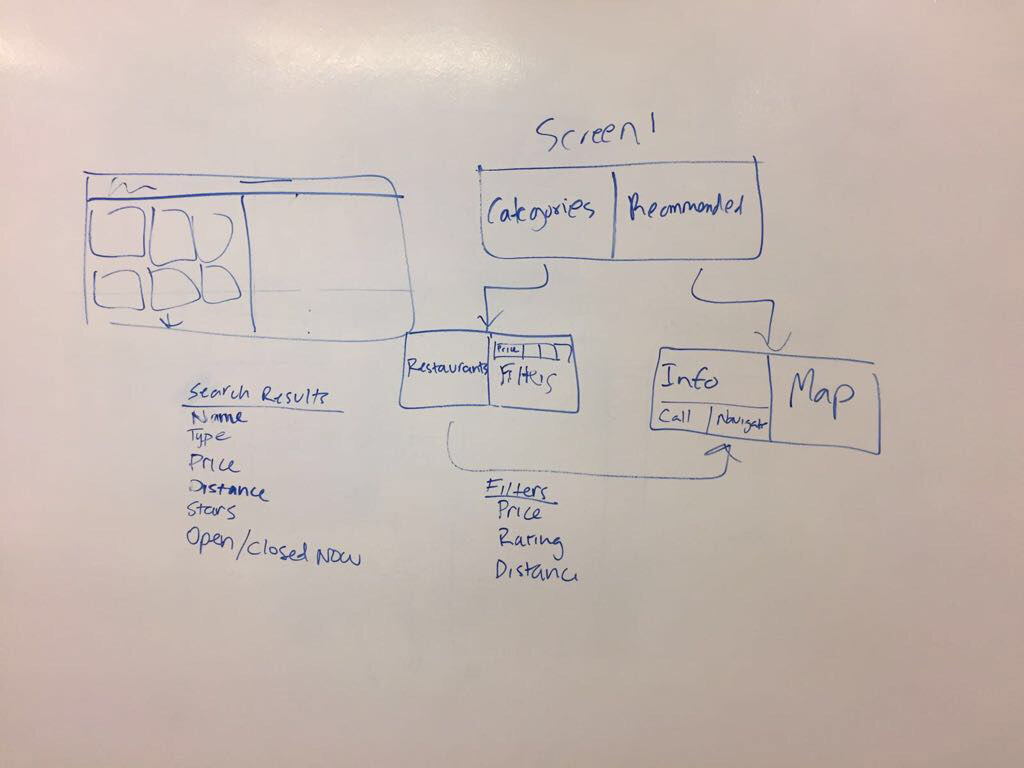 Screen 1
Categories
Recommended
Restaurants
Price
Filters
Info
Call
Navigate
Map
Search Results
Name
Type
Price
Distance
Stars
Open/Closed Now
Filters
Price
Rating
Distance